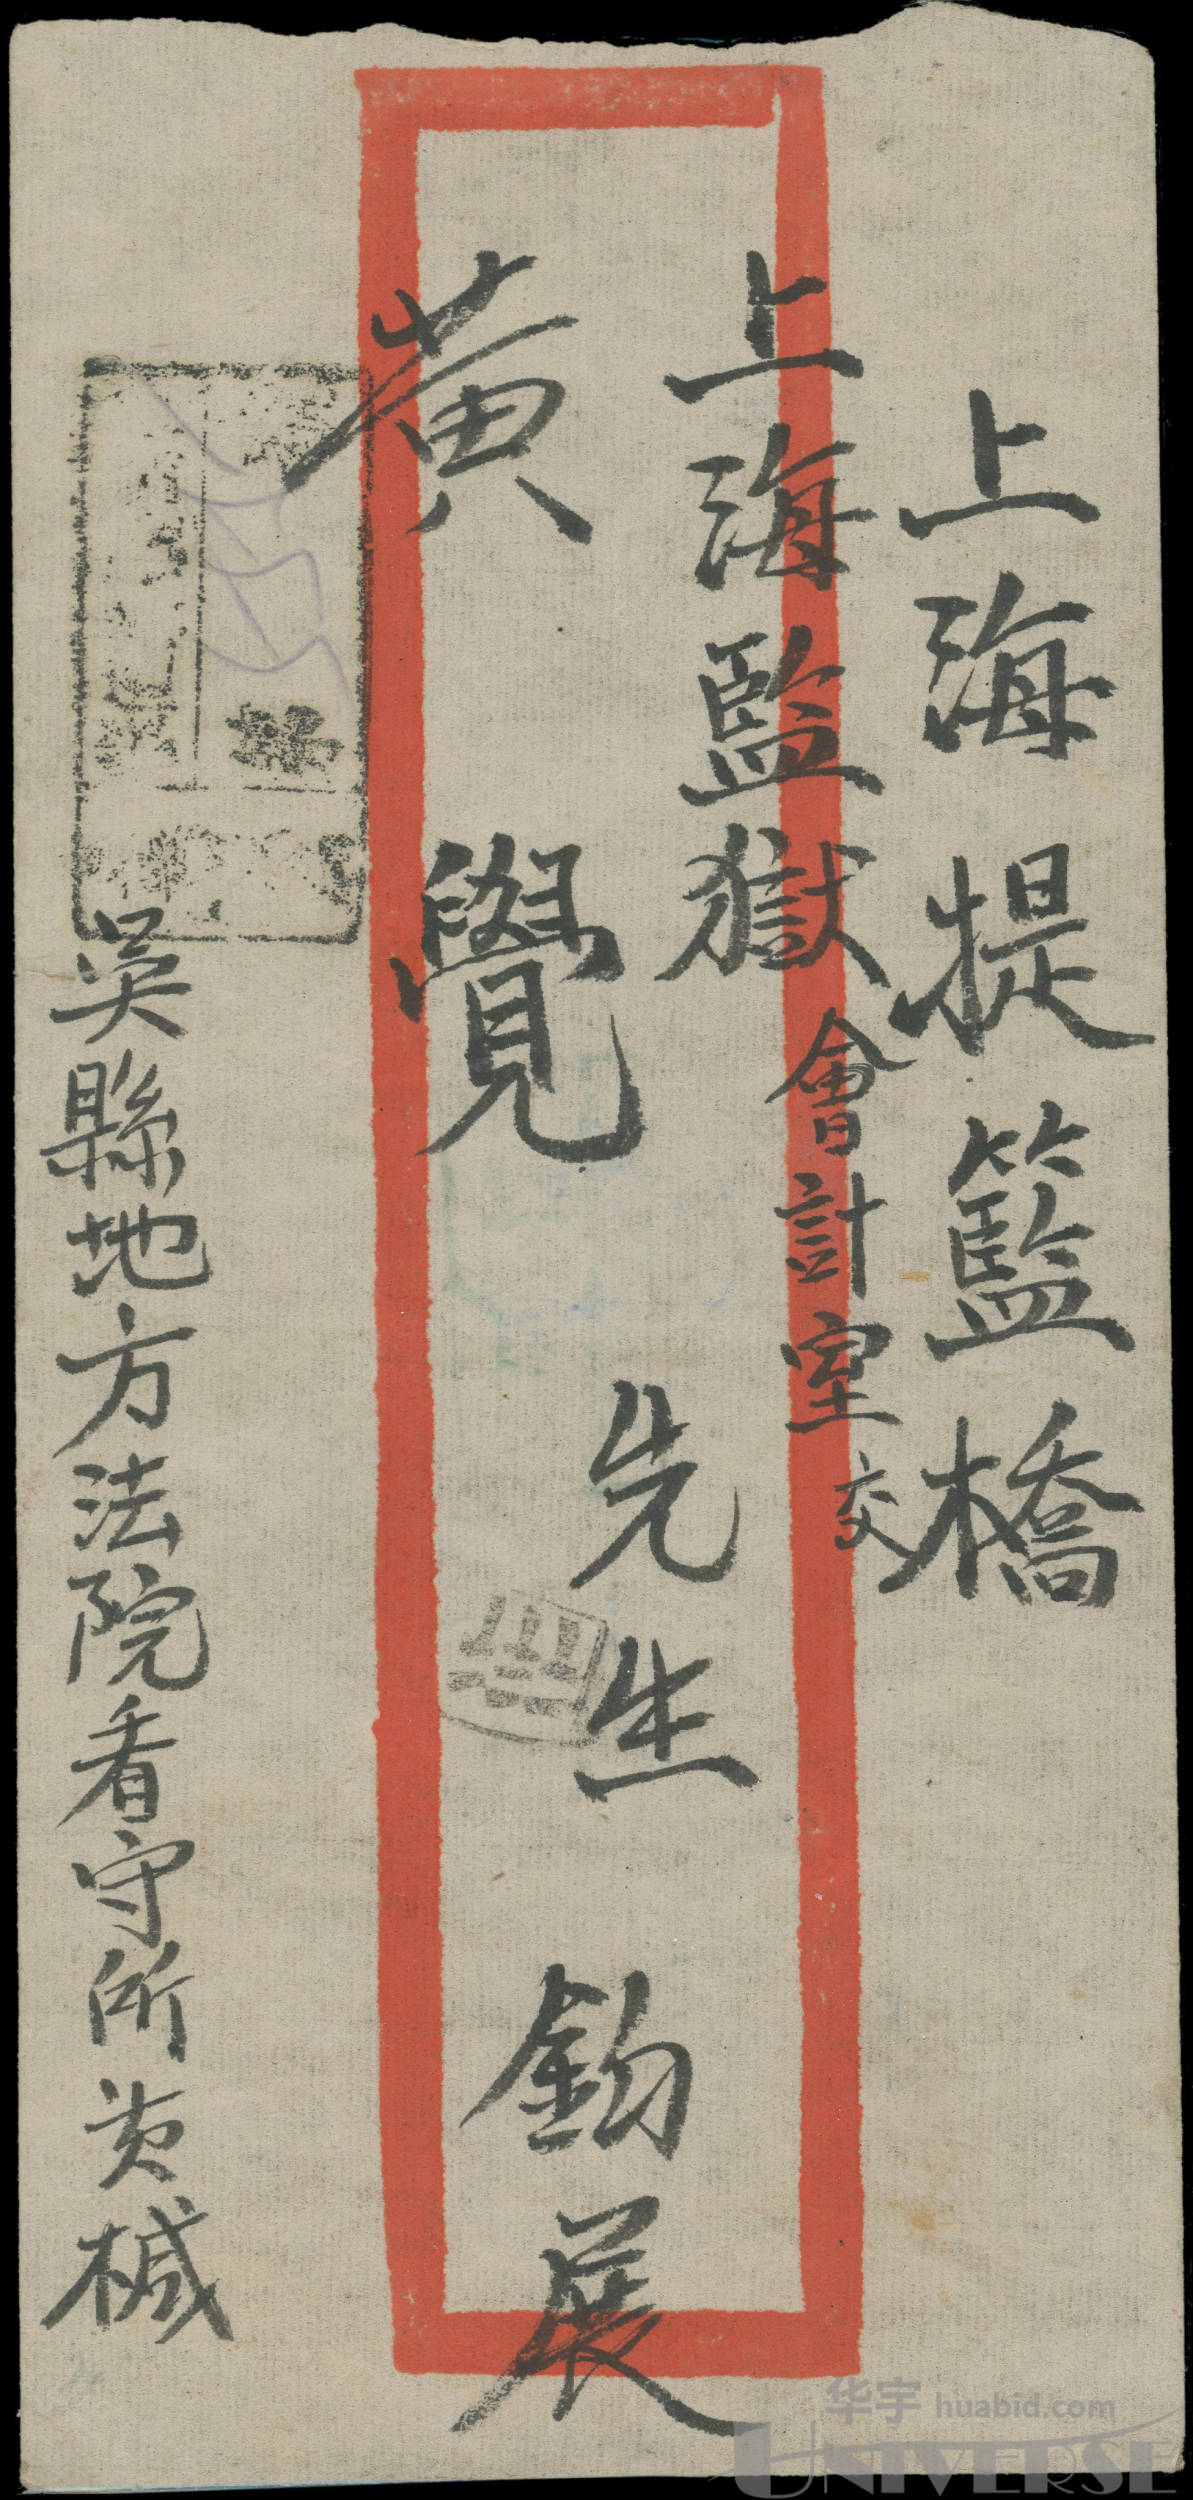 上海提籃橋
上海監獄會計室交
黃覺先生 鈞展
吳縣地方法院看守所黃椷
华宇 huabid.com
UNIVERSE